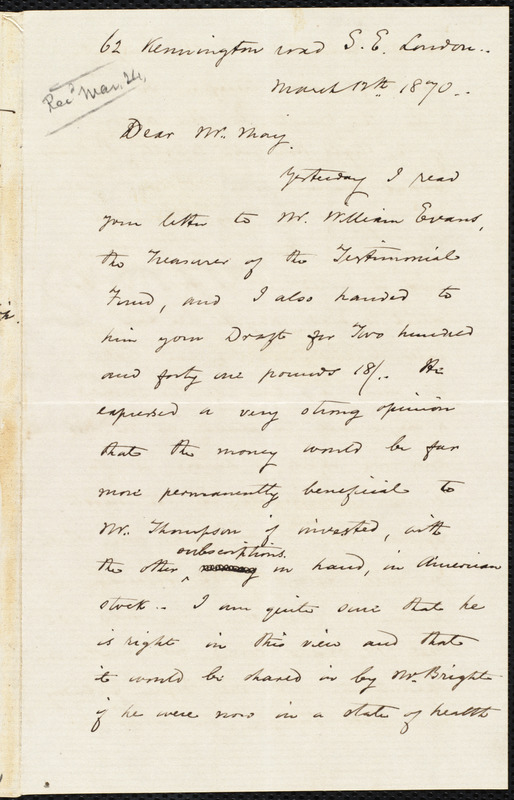 62 Kennington road S.E. London..
Recd Mar. 24,
March 12th 1870..
Dear Mr. May.
Yesterday I read
your letter to Mr. William Evans,
the Treasurer of the Testimonial
Fund, and I also handed to
him your Draft for Two hundred
and forty one pounds 18/.. He
expressed a very strong opinion
that the money would be far
more permanently beneficial to
Mr. Thompson if invested, with
subscriptions.
the other in hand, in American
stock.. I am quite sure that he
is right in this view and that
it would be shared in by Mr. Bright
if he were now in a state of health